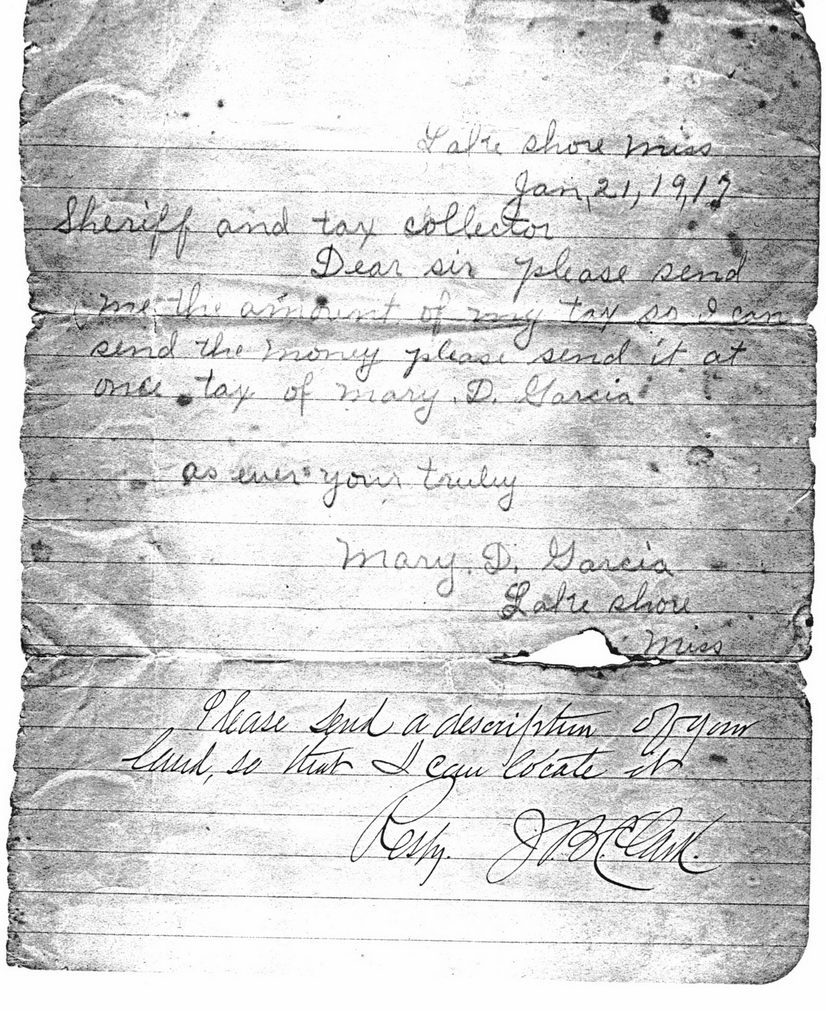 Lake shore Miss
Jan, 21, 1917
Sheriff and tax collector
Dear sir please send
me the amount of my tax so I can
send the money please send it at
once tax of Mary. D. Garcia
as ever your truley
Mary. D. Garcia
Lake shore
Miss
Please send a description of your
land, so that I can locate it
Respy. J. B. Clark.